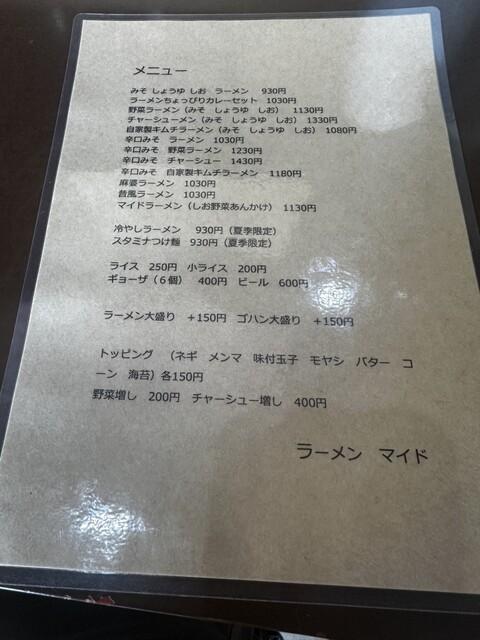 メニュー
みそ しょうゆ しお ラーメン 930円
ラーメンちょっぴりカレーセット 1030円
野菜ラーメン（みそ しょうゆ しお） 1130円
チャーシューメン（みそ しょうゆ しお） 1330円
自家製キムチラーメン（みそ しょうゆ しお） 1080円
辛口みそ ラーメン 1030円
辛口みそ 野菜ラーメン 1230円
辛口みそ チャーシュー 1430円
辛口みそ 自家製キムチラーメン 1180円
麻婆ラーメン 1030円
昔風ラーメン 1030円
マイドラーメン（しお野菜あんかけ） 1130円
冷やしラーメン 930円（夏季限定）
スタミナつけ麺 930円（夏季限定）
ライス 250円 小ライス 200円
ギョーザ（６個） 400円 ビール 600円
ラーメン大盛り +150円 ゴハン大盛り +150円
トッピング （ネギ メンマ 味付玉子 モヤシ バター コ
ーン 海苔）各150円
野菜増し 200円 チャーシュー増し 400円
ラーメン マイド